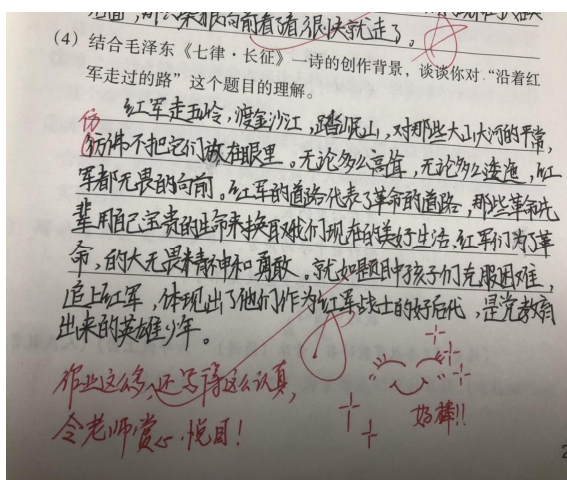 向前看了看,很快就走了。
(4) 结合毛泽东《七律·长征》一诗的创作背景,谈谈你对“沿着红
军走过的路”这个题目的理解。
红军走五岭,渡金沙江,踏岷山,对那些大山大河的平常,
仿
彷彿不把它们放在眼里。无论多么高耸,无论多么逶迤,红
军都无畏的向前。红军的道路代表了革命的道路,那些革命先
辈用自己宝贵的生命来换取我们现在的美好生活。红军们为了革
命,的大无畏精神和勇敢。就如题目中孩子们克服困难,
追上红军,体现出了他们作为红军战士的好后代,是党教育
出来的英雄少年。
作业这么多,还写得这么认真,
令老师赏心悦目!
好棒!!
2